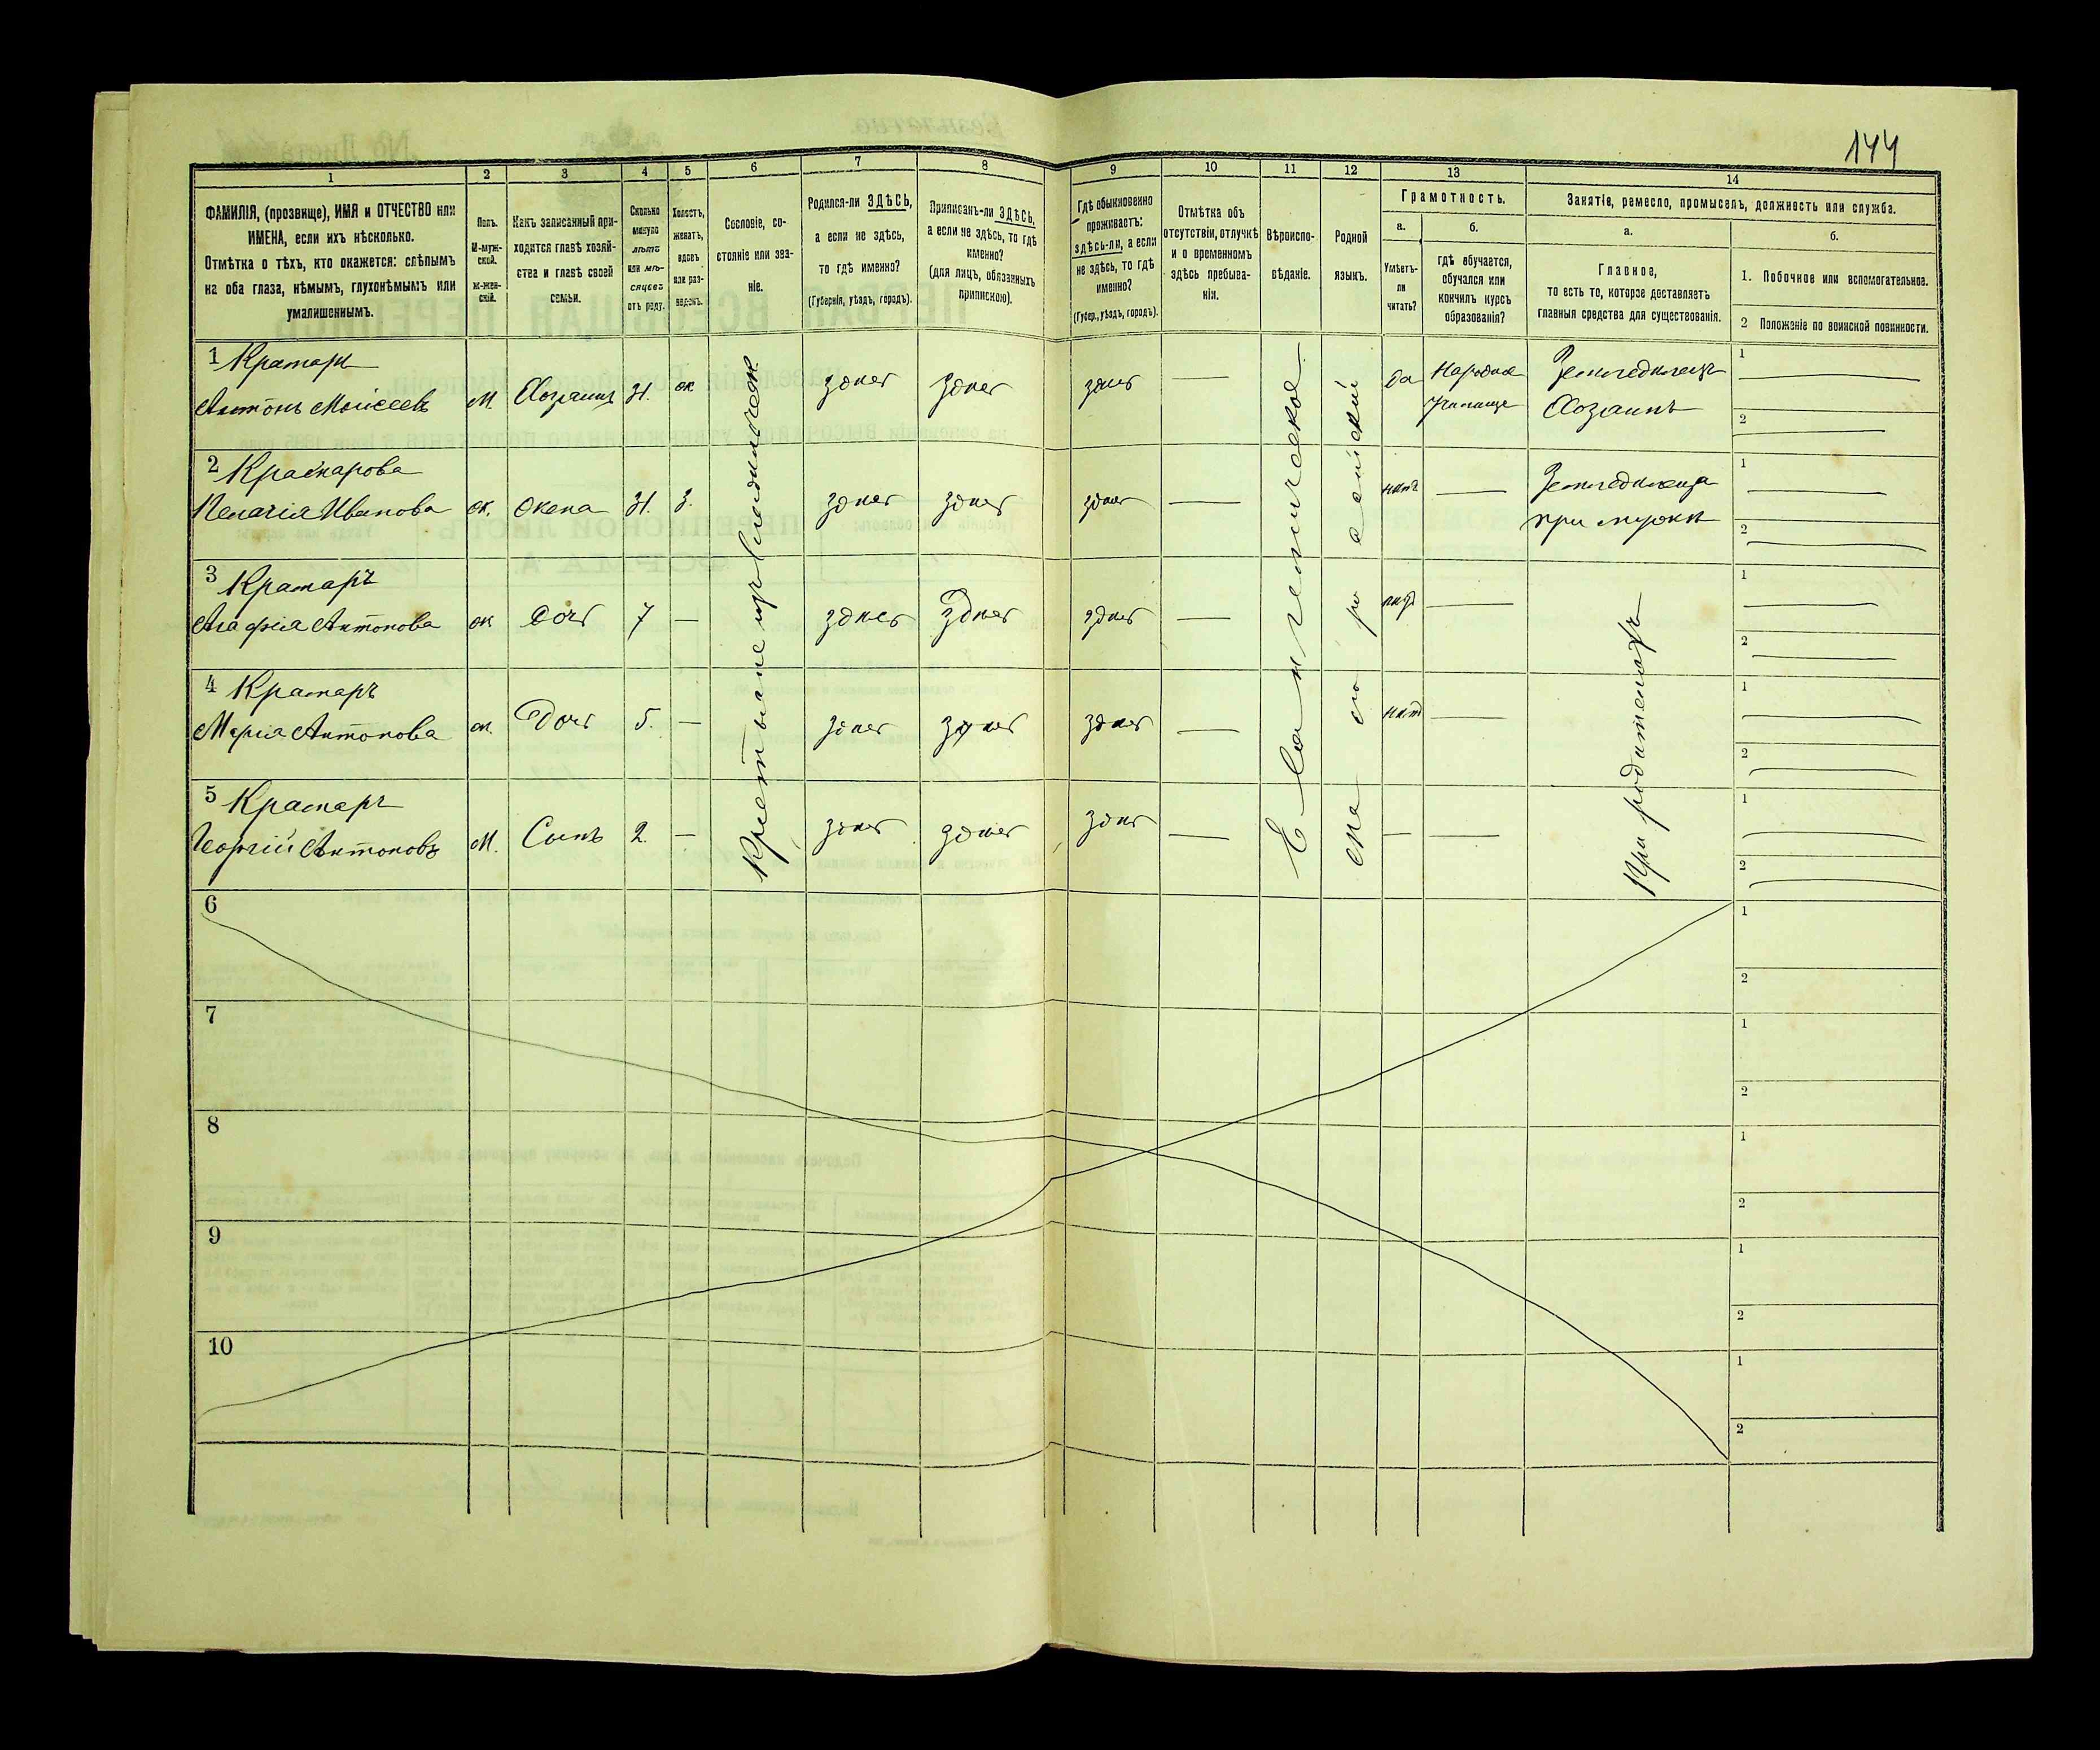 144
1
2
3
4
5
6
7
8
9
10
11
12
13
14
ФАМИЛІЯ, (прозвище), ИМЯ и ОТЧЕСТВО или
ИМЕНА, если ихъ нѣсколько.
Отмѣтка о тѣхъ, кто окажется: слѣпымъ
на оба глаза, нѣмымъ, глухонѣмымъ или
умалишеннымъ.
Полъ.
М-муж-
ской.
Ж-жен-
скій.
Какъ записанный при-
ходится главѣ хозяй-
ства и главѣ своей
семьи.
Сколько
минуло
лѣтъ
или мѣ-
сяцевъ
отъ роду.
Холостъ,
женатъ,
вдовъ
или раз-
веденъ.
Сословіе, со-
стояніе или зва-
ніе.
Родился-ли ЗДѢСЬ,
а если не здѣсь,
то гдѣ именно?
(Губернія, уѣздъ, городъ).
Приписанъ-ли ЗДѢСЬ,
а если не здѣсь, то гдѣ
именно?
(для лицъ, обязанныхъ
припискою).
Гдѣ обыкновенно
проживаетъ:
здѣсь-ли, а если
не здѣсь, то гдѣ
именно?
(Губер., уѣздъ, городъ).
Отмѣтка объ
отсутствіи, отлучкѣ
и о временномъ
здѣсь пребыва-
ніи.
Вѣроиспо-
вѣданіе.
Родной
языкъ.
Грамотность.
а.
Умѣетъ-
ли
читать?
б.
гдѣ обучается,
обучался или
кончилъ курсъ
образованія?
Занятіе, ремесло, промыселъ, должность или служба.
а.
Главное,
то есть то, которое доставляетъ
главныя средства для существованія.
б.
1. Побочное или вспомогательное.
2 Положеніе по воинской повинности.
1 Крамаръ
Антонъ Моисеевъ
М. Хозяинъ 31. ж здѣсь здѣсь здѣсь да
Земледѣлецъ
Хозяинъ
1
2
2
Пелагія Иванова ж. Жена 31. З. здѣсь здѣсь здѣсь нѣтъ
при мужѣ
1
2
3 Крамаръ
Агафія Антонова ж Дочь 7 здѣсь здѣсь здѣсь нѣтъ
1
2
4 Крамаръ
Марія Антонова ж. Дочь 5. здѣсь здѣсь здѣсь нѣтъ
1
2
5 Крамаръ
Георгій Антоновъ М. Сынъ 2. здѣсь здѣсь здѣсь
1
2
Евангелическое
При родителяхъ
6
1
2
7
1
2
8
1
2
9
1
2
10
1
2